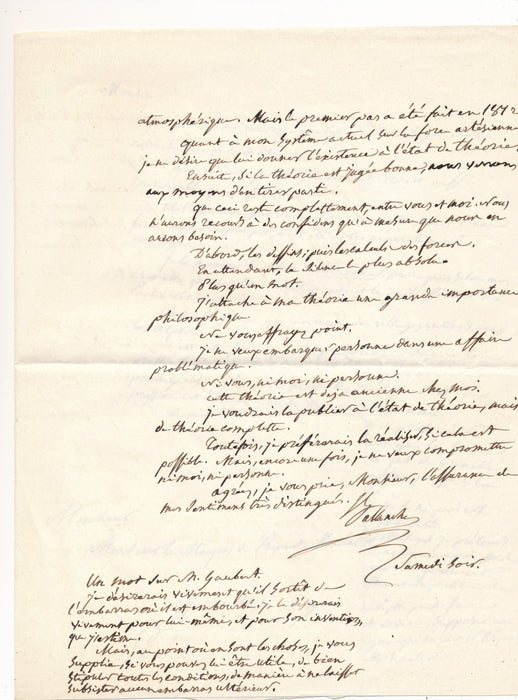 atmosphérique. Mais le premier pas a été fait en 18
quant à mon système actuel sur la force artésienne
je ne désire que lui donner l'existence à l'état de théorie.
Ensuite, si la théorie est jugée bonne, nous verrons
aux moyens d'en tirer partie.
que ceci reste complettement, entre vous et moi. Nous
n'aurons recours à des confidens qu'à mesure que nous en
aurons besoin.
D'abord, les dessins; puis les calculs des forces.
En attendant, le silence le plus absolu.
Plus qu'un mot.
J'attache à ma théorie une grande importance
philosophique.
Ne vous effrayez point.
je ne veux embarquer personne dans une affaire
problématique.
Ni vous, ni moi, ni personne.
cette théorie est déjà ancienne chez moi.
je voudrais la publier à l'état de théorie, mais
de théorie complette.
Toutefois, je préférerais la réaliser, si cela est
possible. Mais, encore une fois, je ne veux compromettre
ni moi, ni personne.
agréez, je vous prie, Monsieur, l'assurance de
mes sentimens très distingués.
Ballanche
Samedi soir.
Un mot sur M. Gaubert.
je désirerais vivement qu'il sortît de
l'embarras où il est embourbé. Je le désirerais
vivement pour lui-même, et pour son invention,
que j'estime.
Mais, au point où en sont les choses, je vous
supplie, si vous pouvez lui être utile, de bien
stipuler toutes les conditions, de manière à ne laisser
subsister aucun embarras ultérieur.